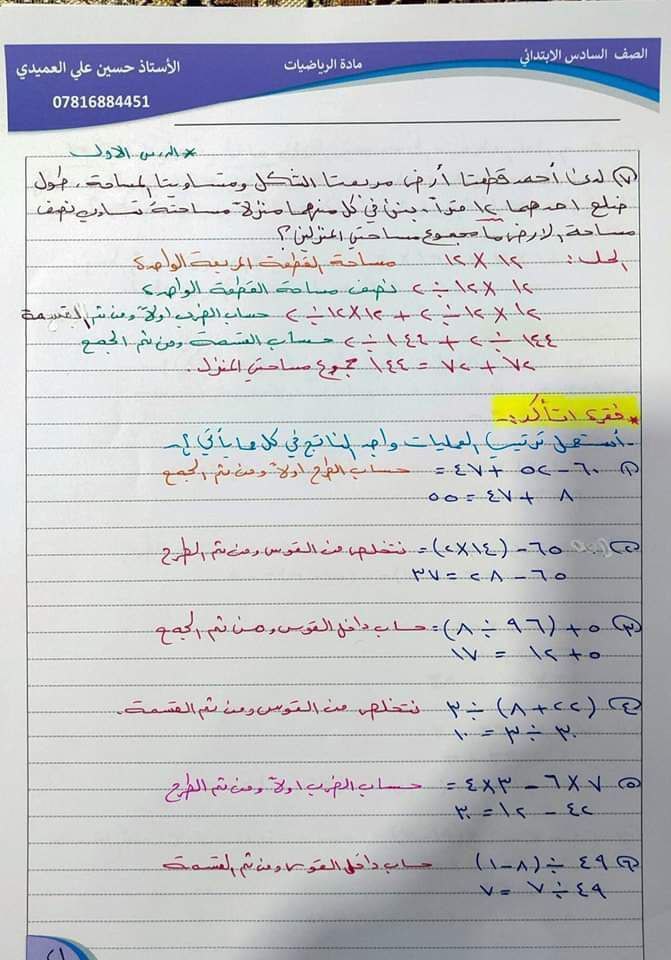 الصف السادس الابتدائي
مادة الرياضيات
الأستاذ حسين علي العميدي
07816884451
* الدرس الاول
٧) لدى أحمد قطعتا أرض مربعتا الشكل ومتساويتا المساحة، طول
ضلع احدهما ١٢ متراً، بنى في كل منهما منزلاً مساحته تساوي نصف
مساحة الارض ما مجموع مساحتي المنزلين؟
الحل: ١٢ × ١٢ مساحة القطعة المربعة الواحدة
١٢ × ١٢ ÷ ٢ نصف مساحة القطعة الواحدة
١٢ × ١٢ ÷ ٢ + ١٢ × ١٢ ÷ ٢ حساب الضرب اولاً ومن ثم القسمة
١٤٤ ÷ ٢ + ١٤٤ ÷ ٢ حساب القسمة ومن ثم الجمع
٧٢ + ٧٢ = ١٤٤ مجموع مساحتي المنزل.
* فقرة اتأكد:-
- أستعمل ترتيب العمليات واجد الناتج في كل مما يأتي؟-
١) ٦٠ - ٥٢ + ٤٧ = حساب الطرح اولاً ومن ثم الجمع
٨ + ٤٧ = ٥٥
٢) ٦٥ - (١٤ × ٢) = نتخلص من القوس ومن ثم الطرح
٦٥ - ٢٨ = ٣٧
٣) ٥ + (٩٦ ÷ ٨) = حساب داخل القوس ومن ثم الجمع
٥ + ١٢ = ١٧
٤) (٢٢ + ٨) ÷ ٣ نتخلص من القوس ومن ثم القسمة.
٣٠ ÷ ٣ = ١٠
٥) ٧ × ٦ - ٣ × ٤ = حساب الضرب اولاً ومن ثم الطرح
٤٢ - ١٢ = ٣٠
٦) ٤٩ ÷ (٨ - ١) حساب داخل القوس ومن ثم القسمة
٤٩ ÷ ٧ = ٧